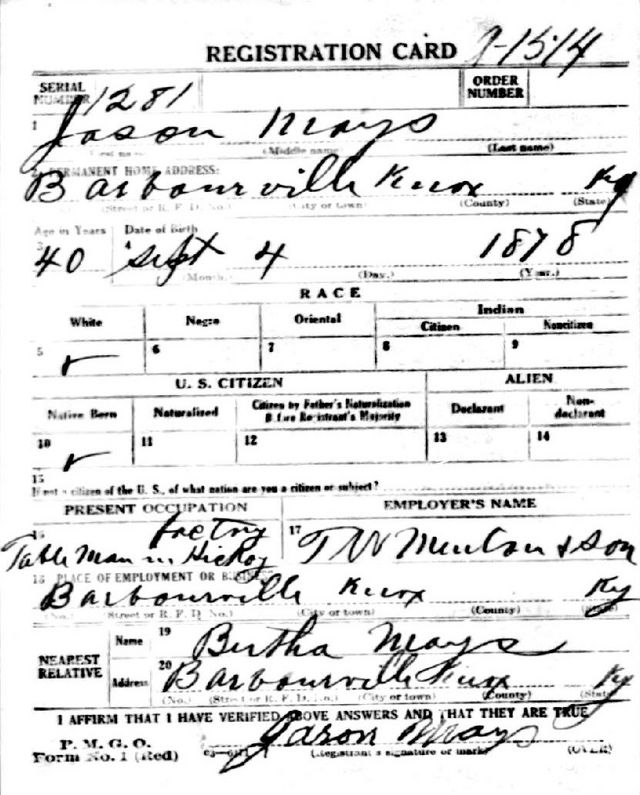 REGISTRATION CARD
SERIAL NUMBER 1281 ORDER NUMBER
1 Jason Mays
(Middle name) (Last name)
2 PERMANENT HOME ADDRESS:
Barbourville Knox Ky
(Street or R. F. D. No.) (City or town) (County) (State)
Age in Years Date of Birth
3 40 4 Sept 4 1878
(Month.) (Day.) (Year.)
RACE
White Negro Oriental Indian
Citizen Noncitizen
5 6 7 8 9
U. S. CITIZEN ALIEN
Native Born Naturalized Citizen by Father's Naturalization Before Registrant's Majority Declarant Non-declarant
10 11 12 13 14
15
If not a citizen of the U. S., of what nation are you a citizen or subject?
PRESENT OCCUPATION EMPLOYER'S NAME
16 Table Man in factory 17 T W Minton & Son
18 PLACE OF EMPLOYMENT OR BUSINESS
Barbourville Knox Ky
(No.) (Street or R. F. D. No.) (City or town) (County) (State)
NEAREST RELATIVE
Name 19 Bertha Mays
Address 20 Barbourville Knox Ky
(No.) (Street or R. F. D. No.) (City or town) (County) (State)
I AFFIRM THAT I HAVE VERIFIED ABOVE ANSWERS AND THAT THEY ARE TRUE
P. M. G. O.
Form No. 1 (Red) Jason Mays
(Registrant's signature or mark) (OVER)